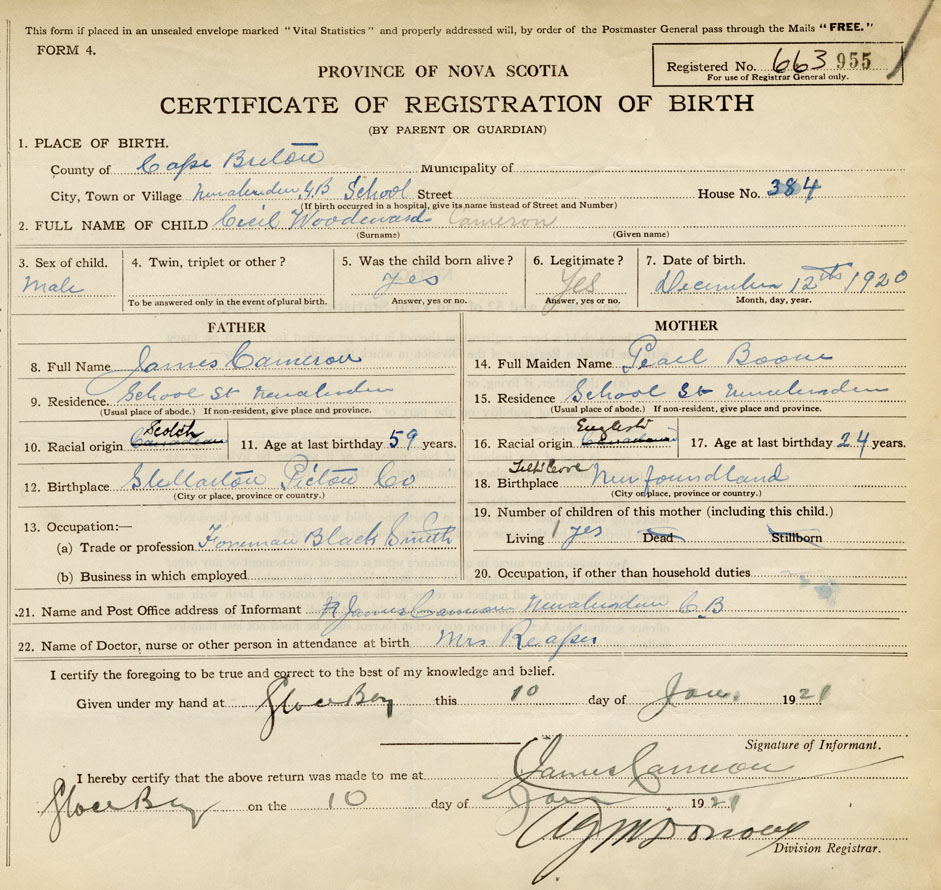 This form if placed in an unsealed envelope marked "Vital Statistics" and properly addressed will, by order of the Postmaster General pass through the Mails "FREE."
FORM 4.
Registered No. 663 955
For use of Registrar General only.
PROVINCE OF NOVA SCOTIA
CERTIFICATE OF REGISTRATION OF BIRTH
(BY PARENT OR GUARDIAN)
1. PLACE OF BIRTH.
County of Cape Breton Municipality of
City, Town or Village School Street House No. 384
(If birth occurred in a hospital, give its name instead of Street and Number)
2. FULL NAME OF CHILD Cecil Woodward Cameron
(Surname) (Given name)
3. Sex of child. 4. Twin, triplet or other? 5. Was the child born alive? 6. Legitimate? 7. Date of birth.
Male yes Yes December 12th 1920
To be answered only in the event of plural birth. Answer, yes or no. Answer, yes or no. Month, day, year.
FATHER
8. Full Name James Cameron
9. Residence School St
(Usual place of abode.) If non-resident, give place and province.
Scotch
10. Racial origin Canadian 11. Age at last birthday 59 years.
12. Birthplace Stellarton Pictou Co
(City or place, province or country.)
13. Occupation:—
(a) Trade or profession Foreman Black Smith
(b) Business in which employed
MOTHER
14. Full Maiden Name Pearl Boone
15. Residence School St
(Usual place of abode.) If non-resident, give place and province.
English
16. Racial origin Canadian 17. Age at last birthday 24 years.
Tilt Cove
18. Birthplace Newfoundland
(City or place, province or country.)
19. Number of children of this mother (including this child.)
Living 1 yes Dead Stillborn
20. Occupation, if other than household duties
21. Name and Post Office address of Informant James Cameron C.B
22. Name of Doctor, nurse or other person in attendance at birth Mrs Reaper
I certify the foregoing to be true and correct to the best of my knowledge and belief.
Given under my hand at Glace Bay this 10 day of Jan. 1921
Signature of Informant.
James Cameron
I hereby certify that the above return was made to me at
Glace Bay on the 10 day of Jan 1921
Division Registrar.